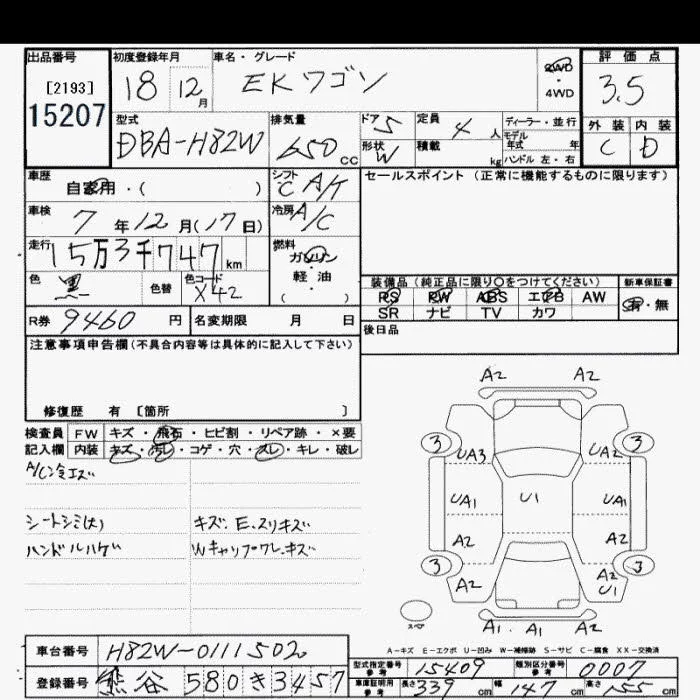 出品番号 初度登録年月 車名・グレード 評価点
[2193] 18 12月 EKワゴン 2WD・4WD 3.5
15207
型式 排気量 ドア 5 定員 4人 ディーラー・並行 外装 内装
DBA-H82W 650cc 形状 W 積載 kg モデル年式 年 C D
ハンドル 左・右
車歴 シフト セールスポイント(正常に機能するものに限ります)
自家用・( ) C A/T
車検 7年12月(17日) 冷房 A/C
走行 15万3千747km 燃料 ガソリン・軽油
( )
色 黒 色替 色コード X42
装備品(純正品に限り○をつけてください) 新車保証書
PS PW ABS エアB AW 有・無
SR ナビ TV カワ
R券 9460円 名変期限 月 日 後日品
注意事項申告欄(不具合内容等は具体的に記入して下さい)
修復歴 有 [箇所 ]
検査員 FW キズ・飛石・ヒビ割・リペア跡・×要
記入欄 内装 キズ・汚レ・コゲ・穴・スレ・キレ・破レ
A/C冷エズ
シートシミ(大) キズ.E.スリキズ
ハンドルハゲ Wキャップワレ.キズ
A2 A2
3 3
UA3 UA2
UA1 U1 UA1
A2 A2
3 3
A2 A2 U1
スペア
A1 A1 A2
A-キズ E-エクボ U-凹み W-補修跡 S-サビ C-腐食 XX-交換済
車台番号 H82W-0111502
型式指定番号 参考 15409 類別区分番号 参考 0007
登録番号 熊谷 580 き 3457
車庫証明用 参考 長さ 339cm 幅 147cm 高さ 155cm